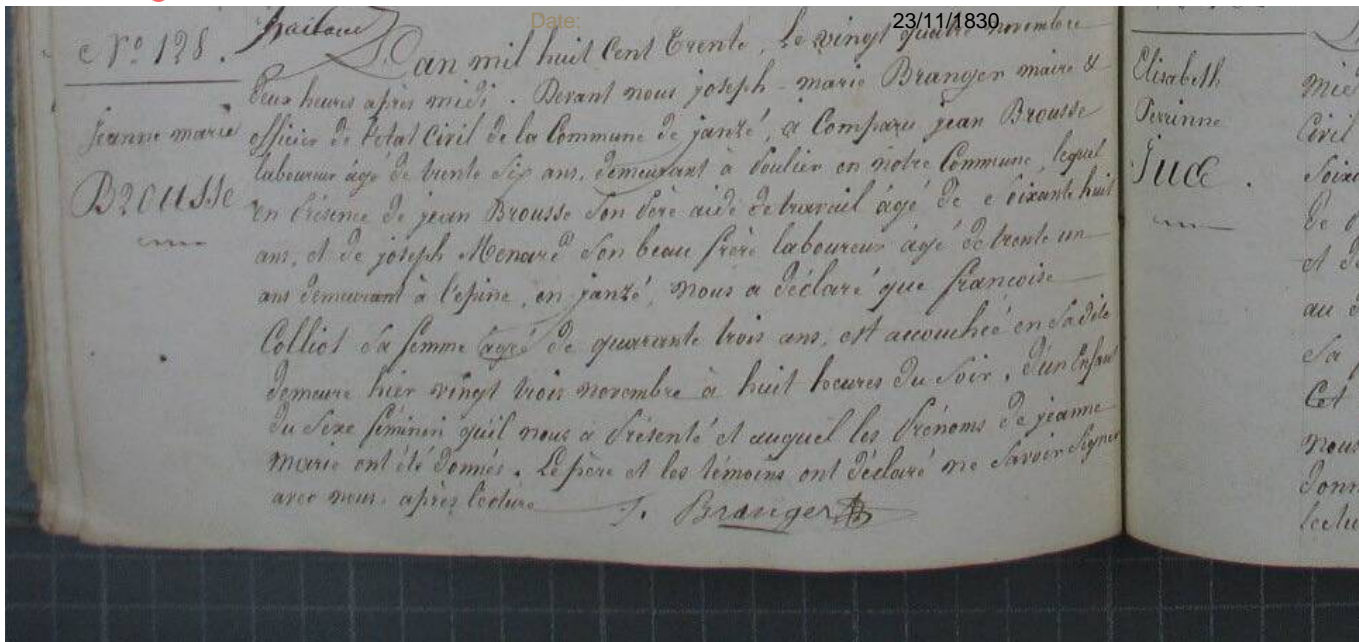 Date: 23/11/1830
N.° 128.
Jeanne marie
BROUSSE
L'an mil huit Cent Trente, le vingt quatre novembre
deux heures après midi. Devant nous joseph-marie Branger maire &
officier de l'état Civil de la Commune de janzé, a Comparu jean Brousse
laboureur âgé de trente Six ans, demeurant à en notre Commune, lequel
en présence de jean Brousse Son père aide de travail âgé de Soixante huit
ans, et de joseph Menard Son beau frère laboureur âgé de trente un
ans demeurant à l'epine, en janzé, nous a déclaré que françoise
Colliot Sa femme agée de quarante trois ans, est accouchée en Sadite
demeure hier vingt trois novembre à huit heures du Soir, d'un Enfant
du Sexe féminin qu'il nous a présenté et auquel les Prénoms de jeanne
marie ont été donnés. Le père et les témoins ont déclaré ne Savoir Signer
avec nous. après lecture
J. Branger
Elisabeth
Perrinne
JUCE.
mid
Civil
Soixa
de d
et de
au d
Sa f
Cet
nous
donn
lectu